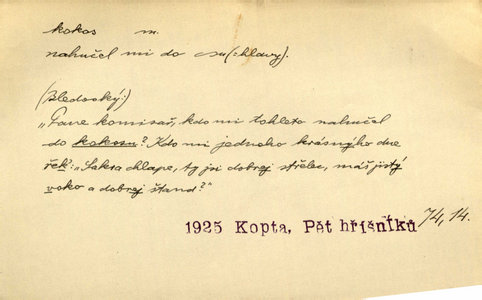 kokos m.
nahučel mi do csu (: hlavy).
(Bledovský:)
„Pane komisař, kdo mi tohleto nahučel
do kokosu? Kdo mi jednoho krásnýho dne
řek: „Saksa chlape, ty jsi dobrej střelec, máš jistý
voko a dobrej štand?"
1925 Kopta, Pět hříšníků 74, 14.